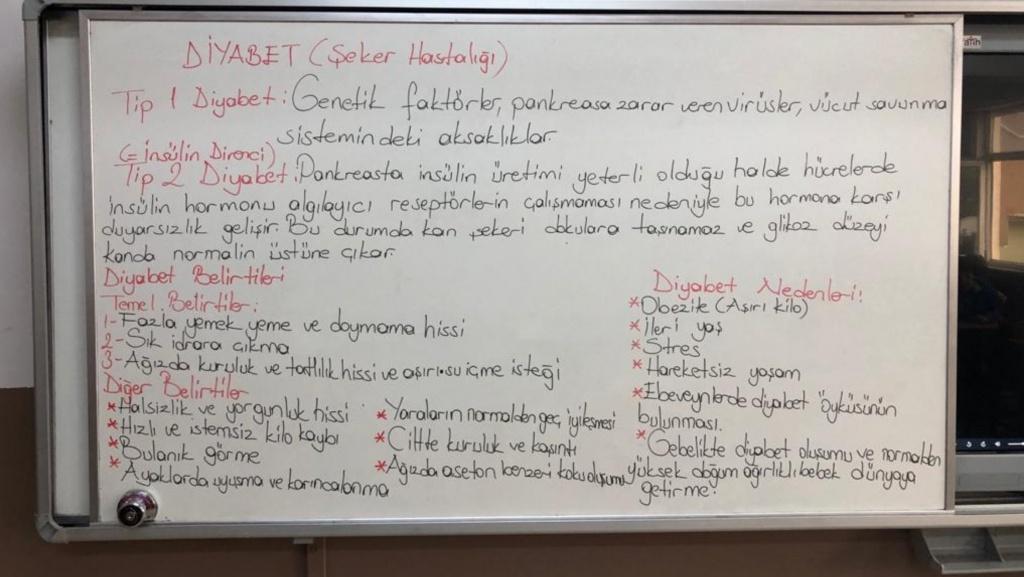 DİYABET (Şeker Hastalığı)
Tip 1 Diyabet: Genetik faktörler, pankreasa zarar veren virüsler, vücut savunma
sistemindeki aksaklıklar.
(= İnsülin Direnci)
Tip 2 Diyabet: Pankreasta insülin üretimi yeterli olduğu halde hücrelerde
insülin hormonu algılayıcı reseptörlerin çalışmaması nedeniyle bu hormona karşı
duyarsızlık gelişir. Bu durumda kan şekeri dokulara taşınamaz ve glikoz düzeyi
kanda normalin üstüne çıkar.
Diyabet Belirtileri
Temel Belirtiler:
1- Fazla yemek yeme ve doymama hissi
2- Sık idrara çıkma
3- Ağızda kuruluk ve tatlılık hissi ve aşırı su içme isteği
Diğer Belirtiler
* Halsizlik ve yorgunluk hissi
* Hızlı ve istemsiz kilo kaybı
* Bulanık görme
* Ayaklarda uyuşma ve karıncalanma
* Yaraların normalden geç iyileşmesi
* Ciltte kuruluk ve kaşıntı
* Ağızda aseton benzeri koku oluşumu
Diyabet Nedenleri:
* Obezite (Aşırı kilo)
* İleri yaş
* Stres
* Hareketsiz yaşam
* Ebeveynlerde diyabet öyküsünün
bulunması.
* Gebelikte diyabet oluşumu ve normalden
yüksek doğum ağırlıklı bebek dünyaya
getirme.